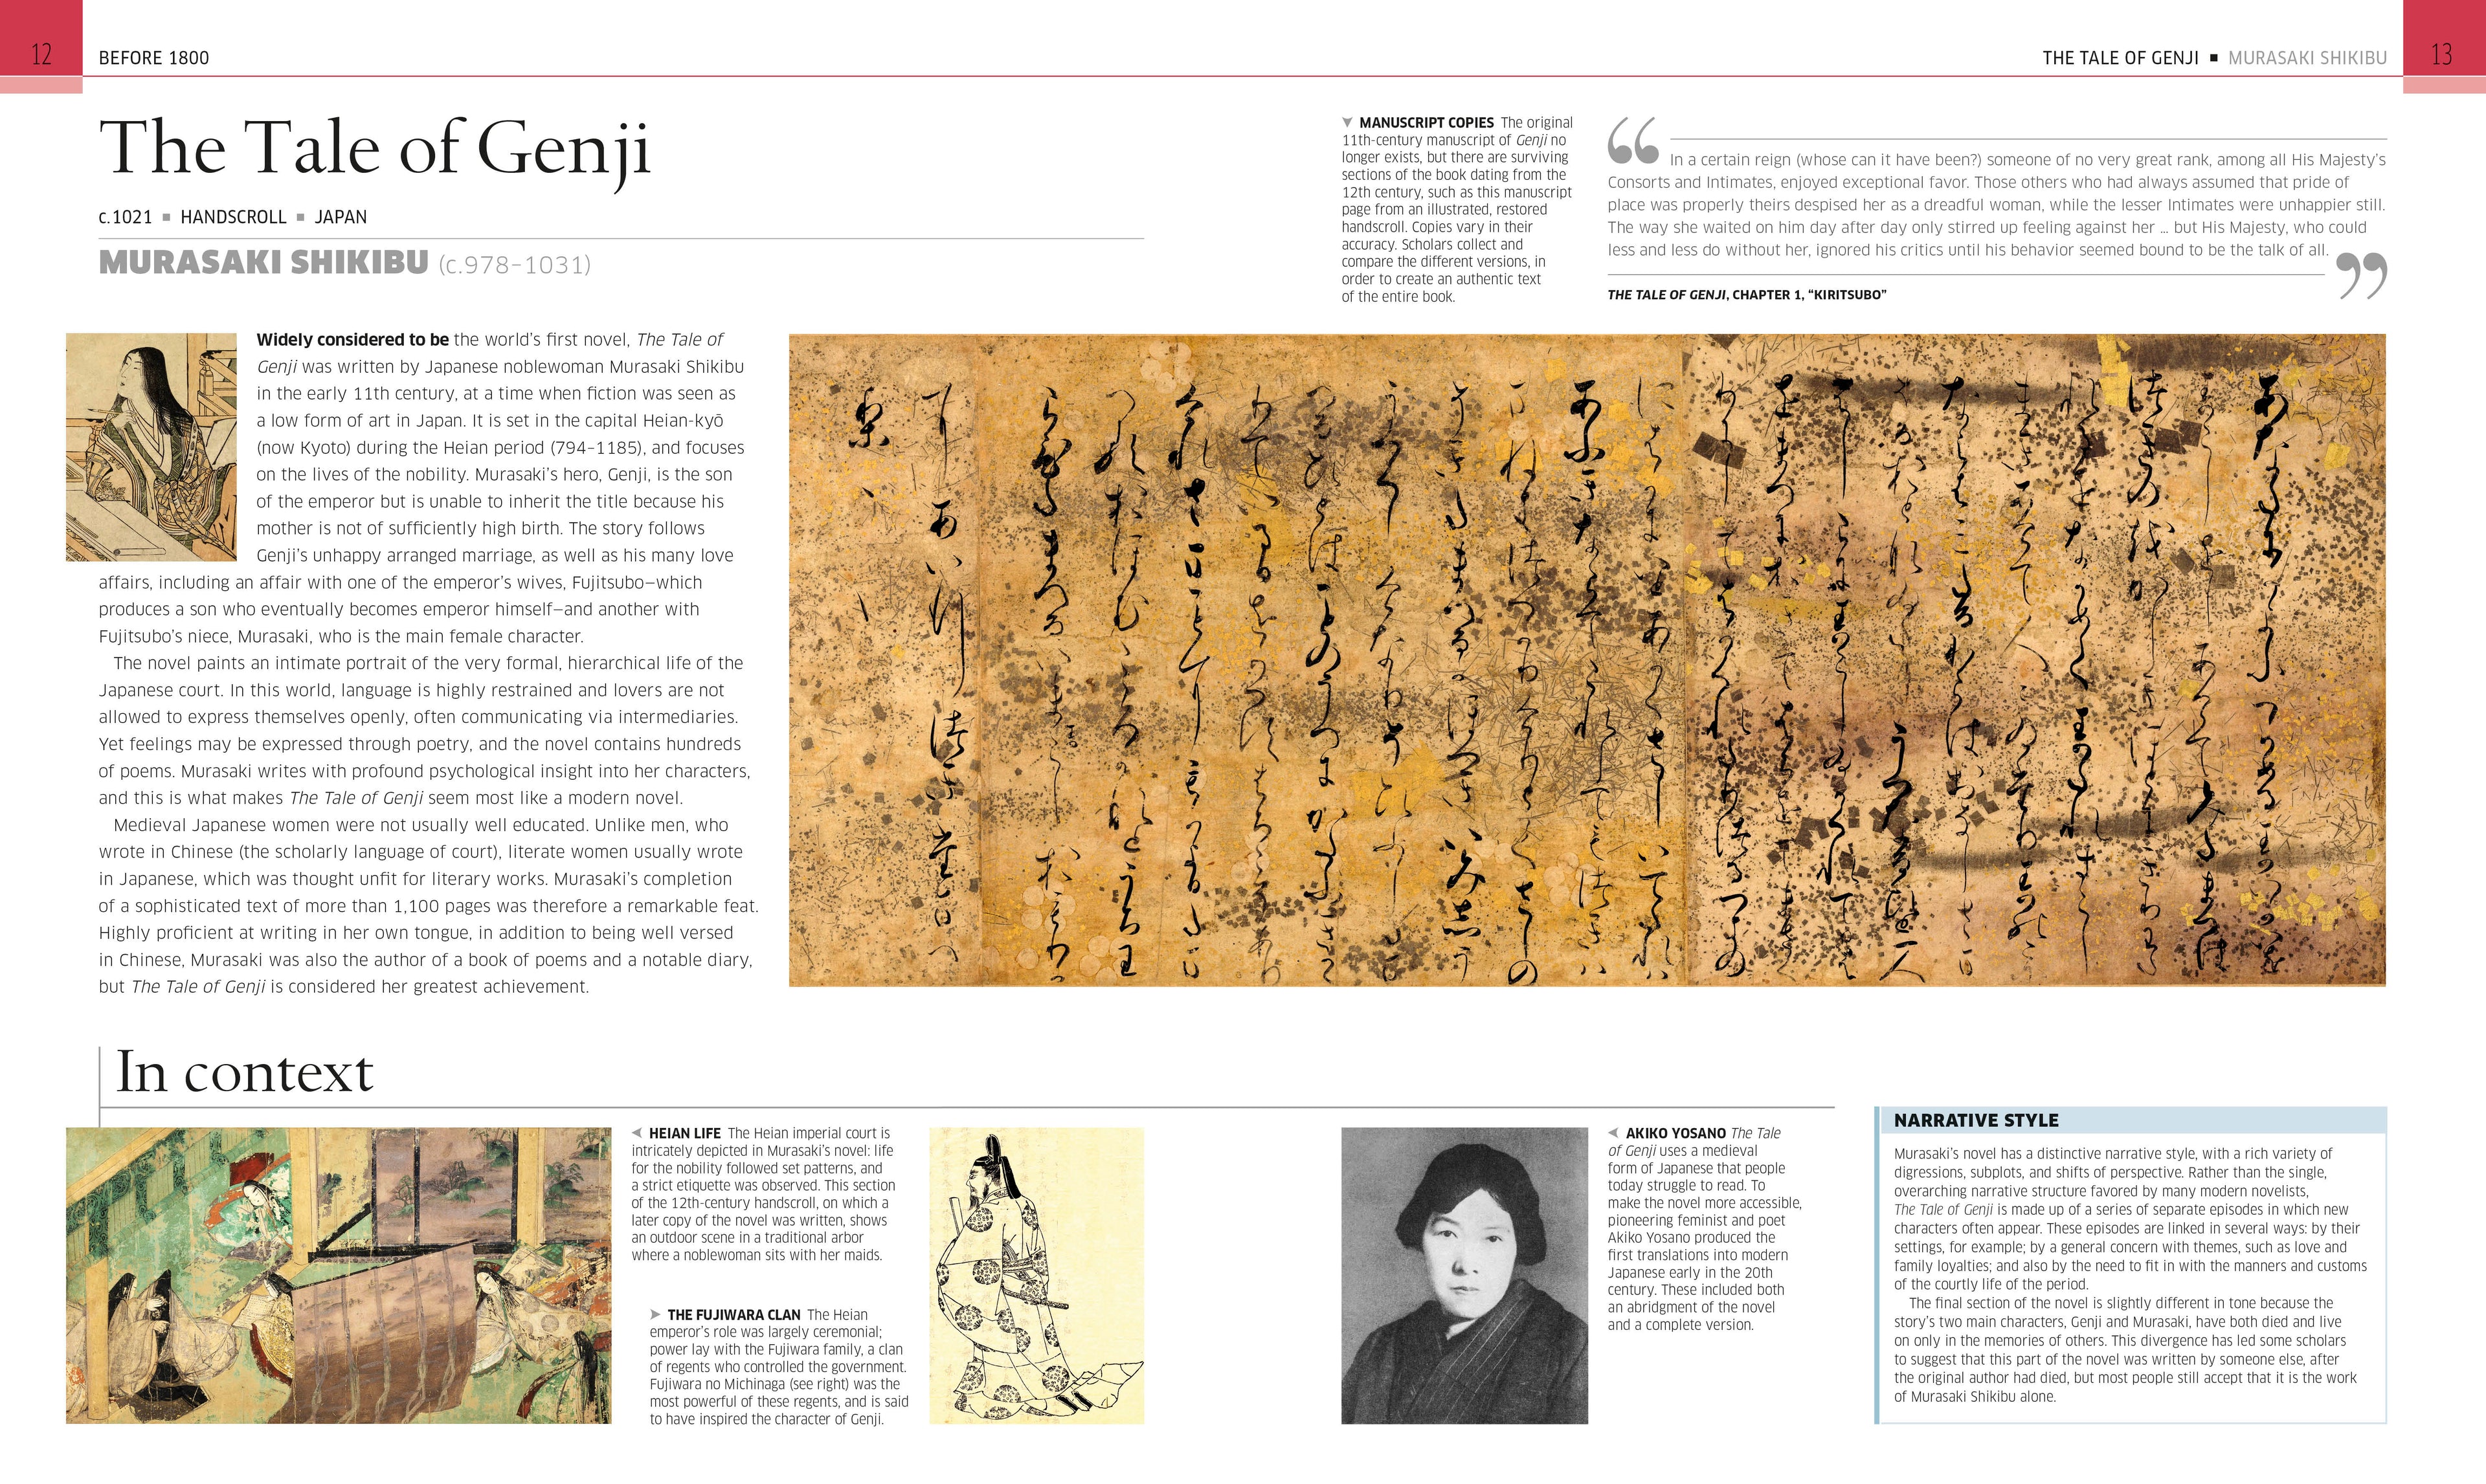 12
BEFORE 1800
THE TALE OF GENJI ▪ MURASAKI SHIKIBU
13
The Tale of Genji
c.1021 ▪ HANDSCROLL ▪ JAPAN
MURASAKI SHIKIBU (c.978–1031)
Widely considered to be the world's first novel, The Tale of
Genji was written by Japanese noblewoman Murasaki Shikibu
in the early 11th century, at a time when fiction was seen as
a low form of art in Japan. It is set in the capital Heian-kyō
(now Kyoto) during the Heian period (794–1185), and focuses
on the lives of the nobility. Murasaki's hero, Genji, is the son
of the emperor but is unable to inherit the title because his
mother is not of sufficiently high birth. The story follows
Genji's unhappy arranged marriage, as well as his many love
affairs, including an affair with one of the emperor's wives, Fujitsubo—which
produces a son who eventually becomes emperor himself—and another with
Fujitsubo's niece, Murasaki, who is the main female character.
The novel paints an intimate portrait of the very formal, hierarchical life of the
Japanese court. In this world, language is highly restrained and lovers are not
allowed to express themselves openly, often communicating via intermediaries.
Yet feelings may be expressed through poetry, and the novel contains hundreds
of poems. Murasaki writes with profound psychological insight into her characters,
and this is what makes The Tale of Genji seem most like a modern novel.
Medieval Japanese women were not usually well educated. Unlike men, who
wrote in Chinese (the scholarly language of court), literate women usually wrote
in Japanese, which was thought unfit for literary works. Murasaki's completion
of a sophisticated text of more than 1,100 pages was therefore a remarkable feat.
Highly proficient at writing in her own tongue, in addition to being well versed
in Chinese, Murasaki was also the author of a book of poems and a notable diary,
but The Tale of Genji is considered her greatest achievement.
MANUSCRIPT COPIES The original
11th-century manuscript of Genji no
longer exists, but there are surviving
sections of the book dating from the
12th century, such as this manuscript
page from an illustrated, restored
handscroll. Copies vary in their
accuracy. Scholars collect and
compare the different versions, in
order to create an authentic text
of the entire book.
“ In a certain reign (whose can it have been?) someone of no very great rank, among all His Majesty's
Consorts and Intimates, enjoyed exceptional favor. Those others who had always assumed that pride of
place was properly theirs despised her as a dreadful woman, while the lesser Intimates were unhappier still.
The way she waited on him day after day only stirred up feeling against her ... but His Majesty, who could
less and less do without her, ignored his critics until his behavior seemed bound to be the talk of all. ”
THE TALE OF GENJI, CHAPTER 1, “KIRITSUBO”
In context
HEIAN LIFE The Heian imperial court is
intricately depicted in Murasaki's novel: life
for the nobility followed set patterns, and
a strict etiquette was observed. This section
of the 12th-century handscroll, on which a
later copy of the novel was written, shows
an outdoor scene in a traditional arbor
where a noblewoman sits with her maids.
THE FUJIWARA CLAN The Heian
emperor's role was largely ceremonial;
power lay with the Fujiwara family, a clan
of regents who controlled the government.
Fujiwara no Michinaga (see right) was the
most powerful of these regents, and is said
to have inspired the character of Genji.
AKIKO YOSANO The Tale
of Genji uses a medieval
form of Japanese that people
today struggle to read. To
make the novel more accessible,
pioneering feminist and poet
Akiko Yosano produced the
first translations into modern
Japanese early in the 20th
century. These included both
an abridgment of the novel
and a complete version.
NARRATIVE STYLE
Murasaki's novel has a distinctive narrative style, with a rich variety of
digressions, subplots, and shifts of perspective. Rather than the single,
overarching narrative structure favored by many modern novelists,
The Tale of Genji is made up of a series of separate episodes in which new
characters often appear. These episodes are linked in several ways: by their
settings, for example; by a general concern with themes, such as love and
family loyalties; and also by the need to fit in with the manners and customs
of the courtly life of the period.
The final section of the novel is slightly different in tone because the
story's two main characters, Genji and Murasaki, have both died and live
on only in the memories of others. This divergence has led some scholars
to suggest that this part of the novel was written by someone else, after
the original author had died, but most people still accept that it is the work
of Murasaki Shikibu alone.